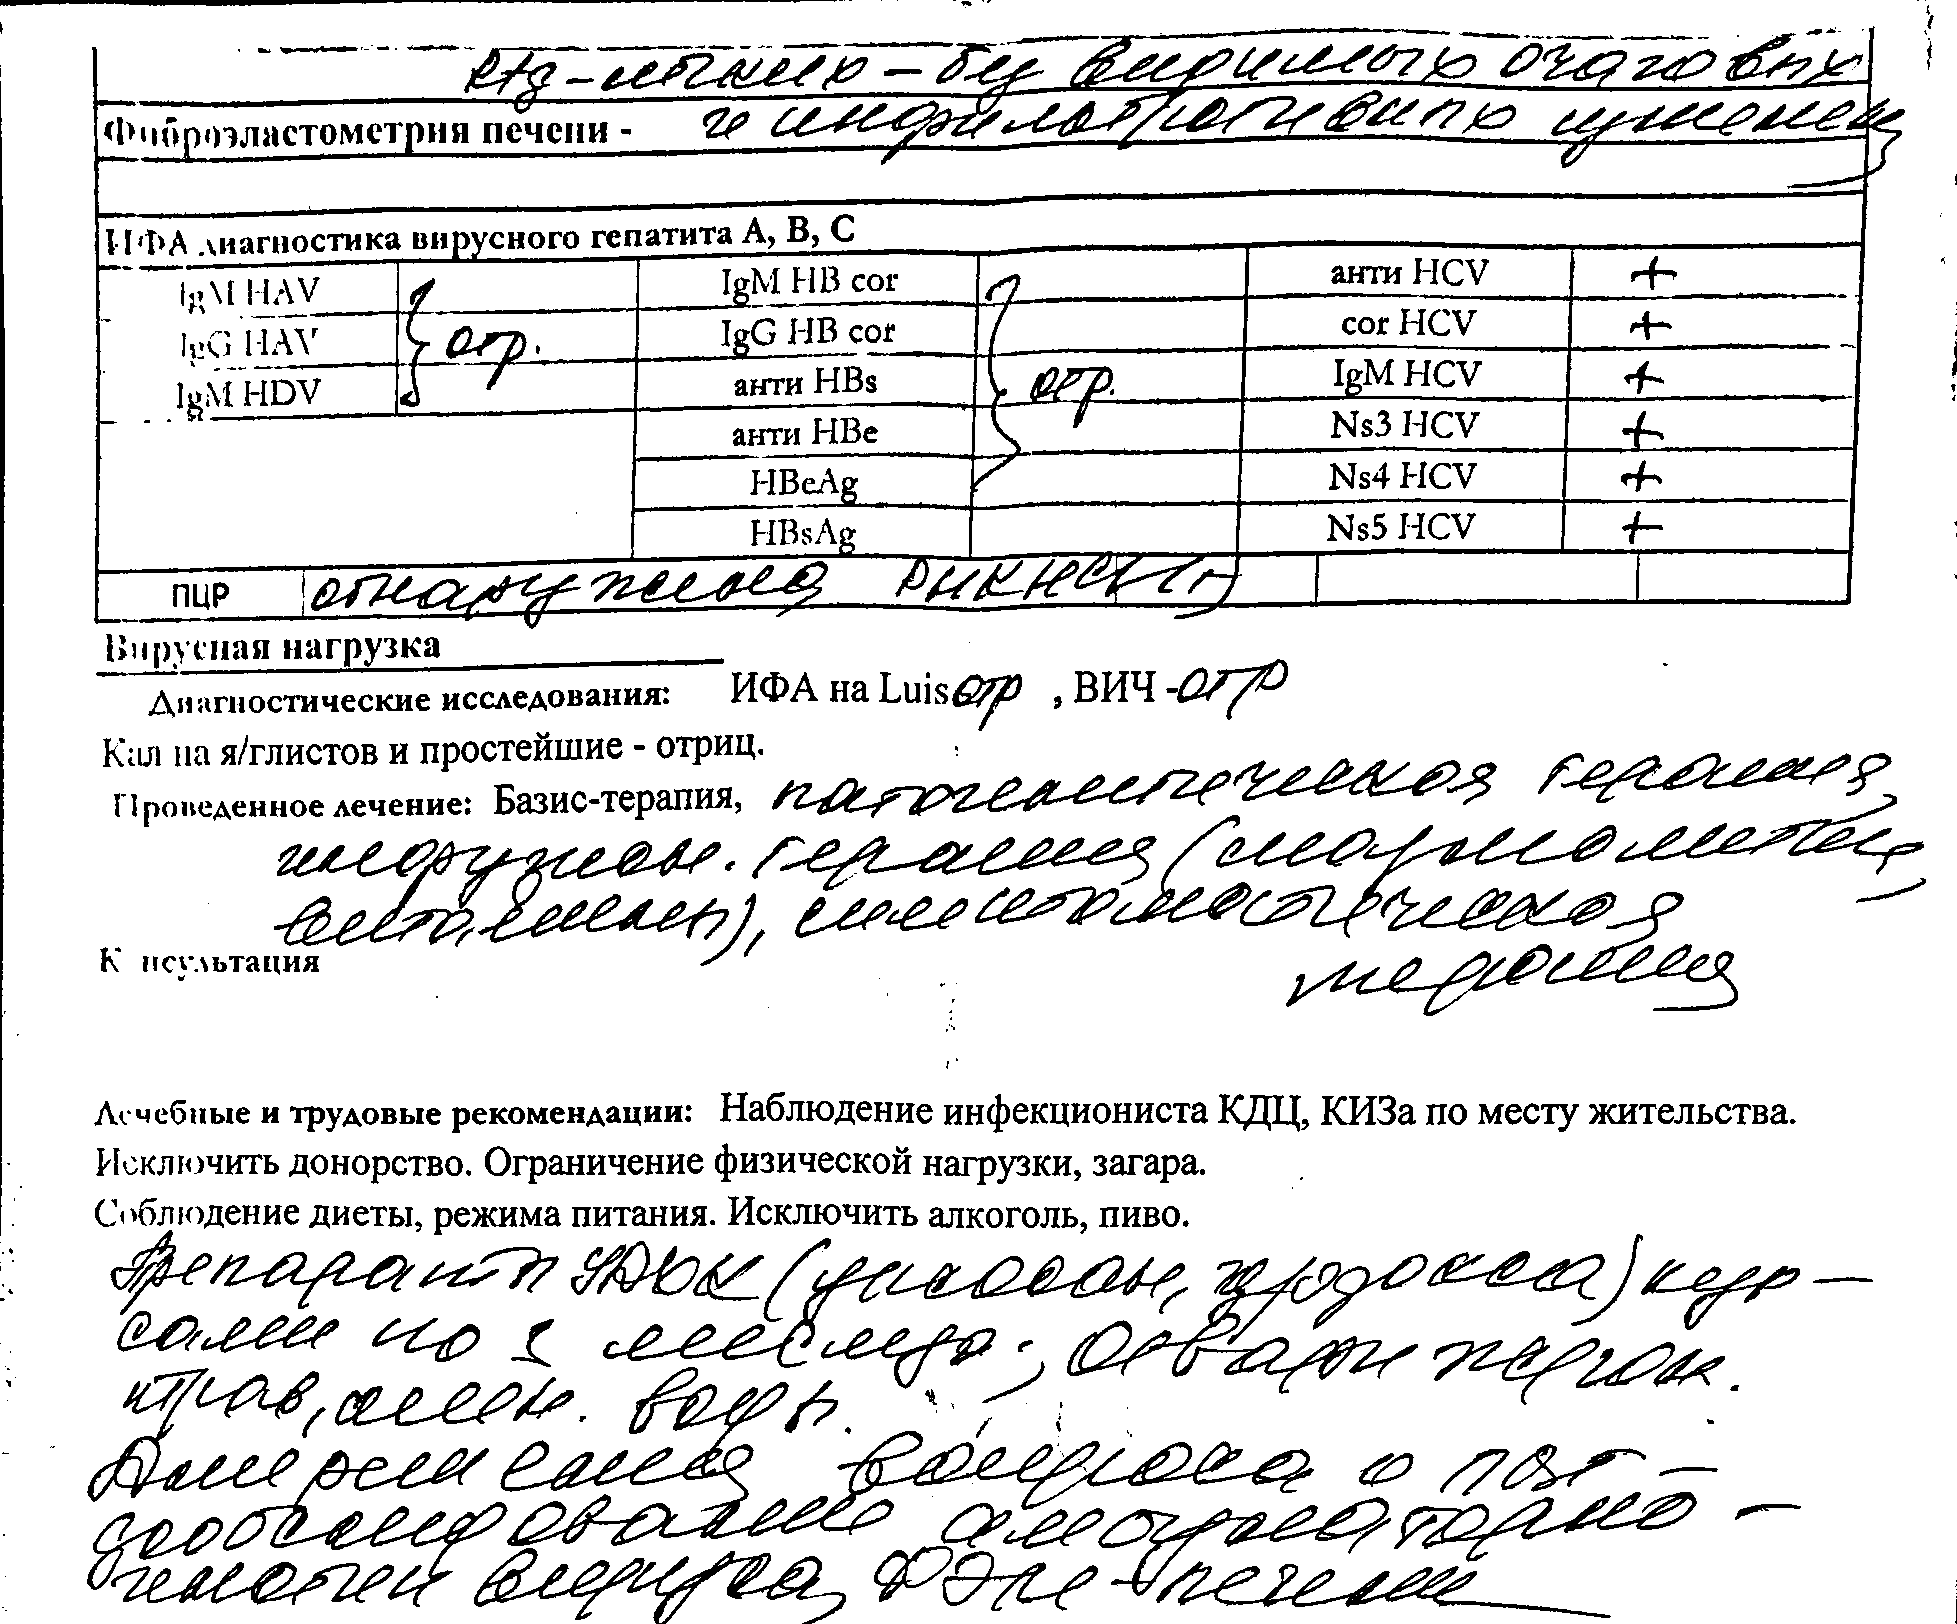 Rtg-легких - без видимых очаговых
Фиброэластометрия печени - и инфильтративных изменений
ИФА диагностика вирусного гепатита А, В, С
IgM HAV IgM HB cor анти HCV +
IgG HAV отр. IgG HB cor cor HCV +
IgM HDV анти HBs отр. IgM HCV +
анти HBe Ns3 HCV +
HBeAg Ns4 HCV +
HBsAg Ns5 HCV +
ПЦР обнаружена РНК HCV
Вирусная нагрузка
Диагностические исследования: ИФА на Luis отр , ВИЧ - отр
Кал на я/глистов и простейшие - отриц.
Проведенное лечение: Базис-терапия, патогенетическая терапия,
инфузион. терапия
витамины), симптоматическая
терапия
Консультация
Лечебные и трудовые рекомендации: Наблюдение инфекциониста КДЦ, КИЗа по месту жительства.
Исключить донорство. Ограничение физической нагрузки, загара.
Соблюдение диеты, режима питания. Исключить алкоголь, пиво.
Препараты УДХК (урсосан, ) кур-
сами по 3 месяца; отвары
трав, мин. воды.
Для решения вопроса о ПВТ -
дообследование амбулаторно -
генотип вируса, ФЭМ - печени